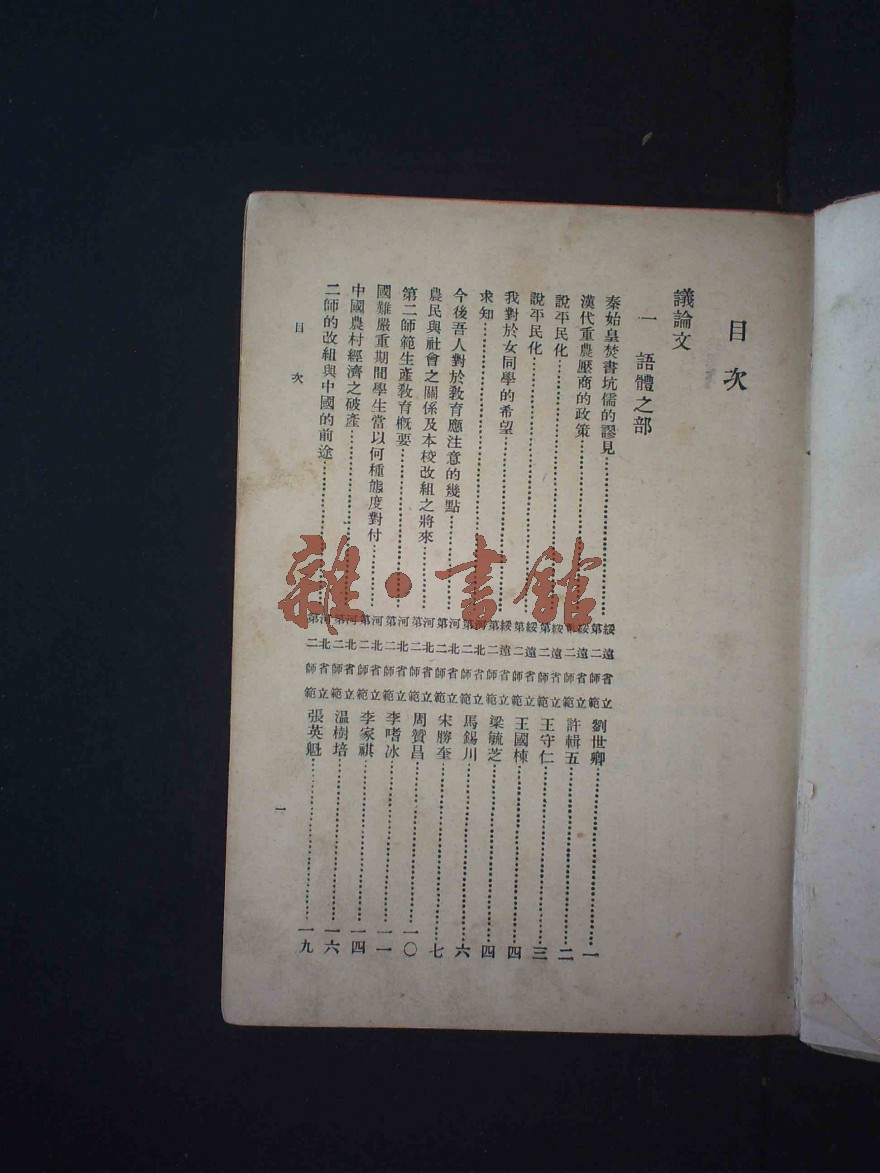 目次
議論文
一 語體之部
秦始皇焚書坑儒的謬見……綏遠省立第二師範 劉世卿……一
漢代重農壓商的政策……綏遠省立第二師範 許輯五……二
說平民化……綏遠省立第二師範 王守仁……三
說平民化……綏遠省立第二師範 王國棟……四
我對於女同學的希望……綏遠省立第二師範 梁毓芝……四
求知……河北省立第二師範 馬錫川……六
今後吾人對於教育應注意的幾點……河北省立第二師範 宋勝奎……七
農民與社會之關係及本校改組之將來……河北省立第二師範 周贊昌……一〇
第二師範生產教育概要……河北省立第二師範 李嗜冰……一一
國難嚴重期間學生當以何種態度對付……河北省立第二師範 李家祺……一四
中國農村經濟之破產……河北省立第二師範 温樹培……一六
二師的改組與中國的前途……河北省立第二師範 張英魁……一九
目次
一
雜·書館